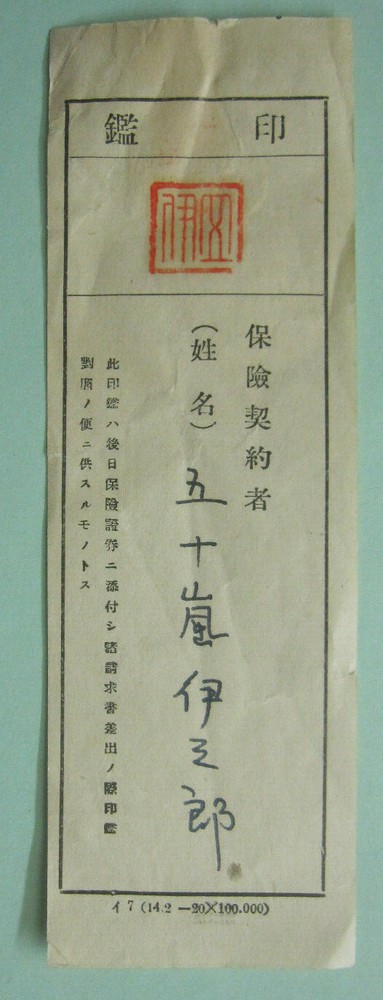 印鑑
伊五
保險契約者
(姓名) 五十嵐伊之郎
此印鑑ハ後日保險證券ニ添付シ諸請求書差出ノ際印鑑
對照ノ便ニ供スルモノトス
イ7 (14.2—20×100.000)